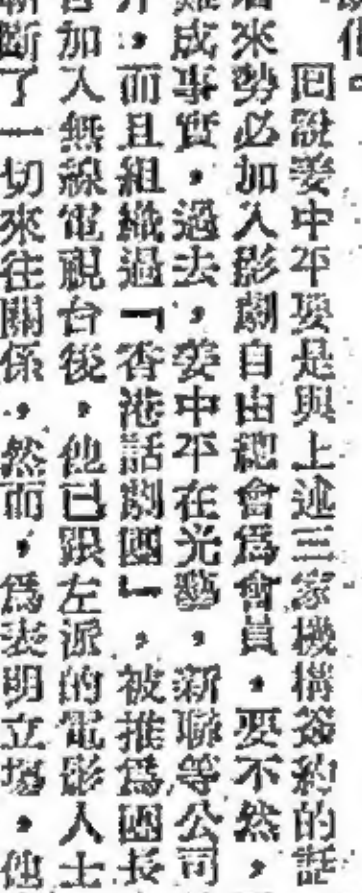 囘說姜中平要是與上述三家機構簽約的話
來勢必加入影劇自由總會爲會員，要不然，
成事實，過去，姜中平在光藝，新聯等公司
，而且組織過「香港話劇團」，被推爲團長
加入無線電視台後，他已跟左派的電影人士
斷了一切來往關係，然而，爲表明立場，他